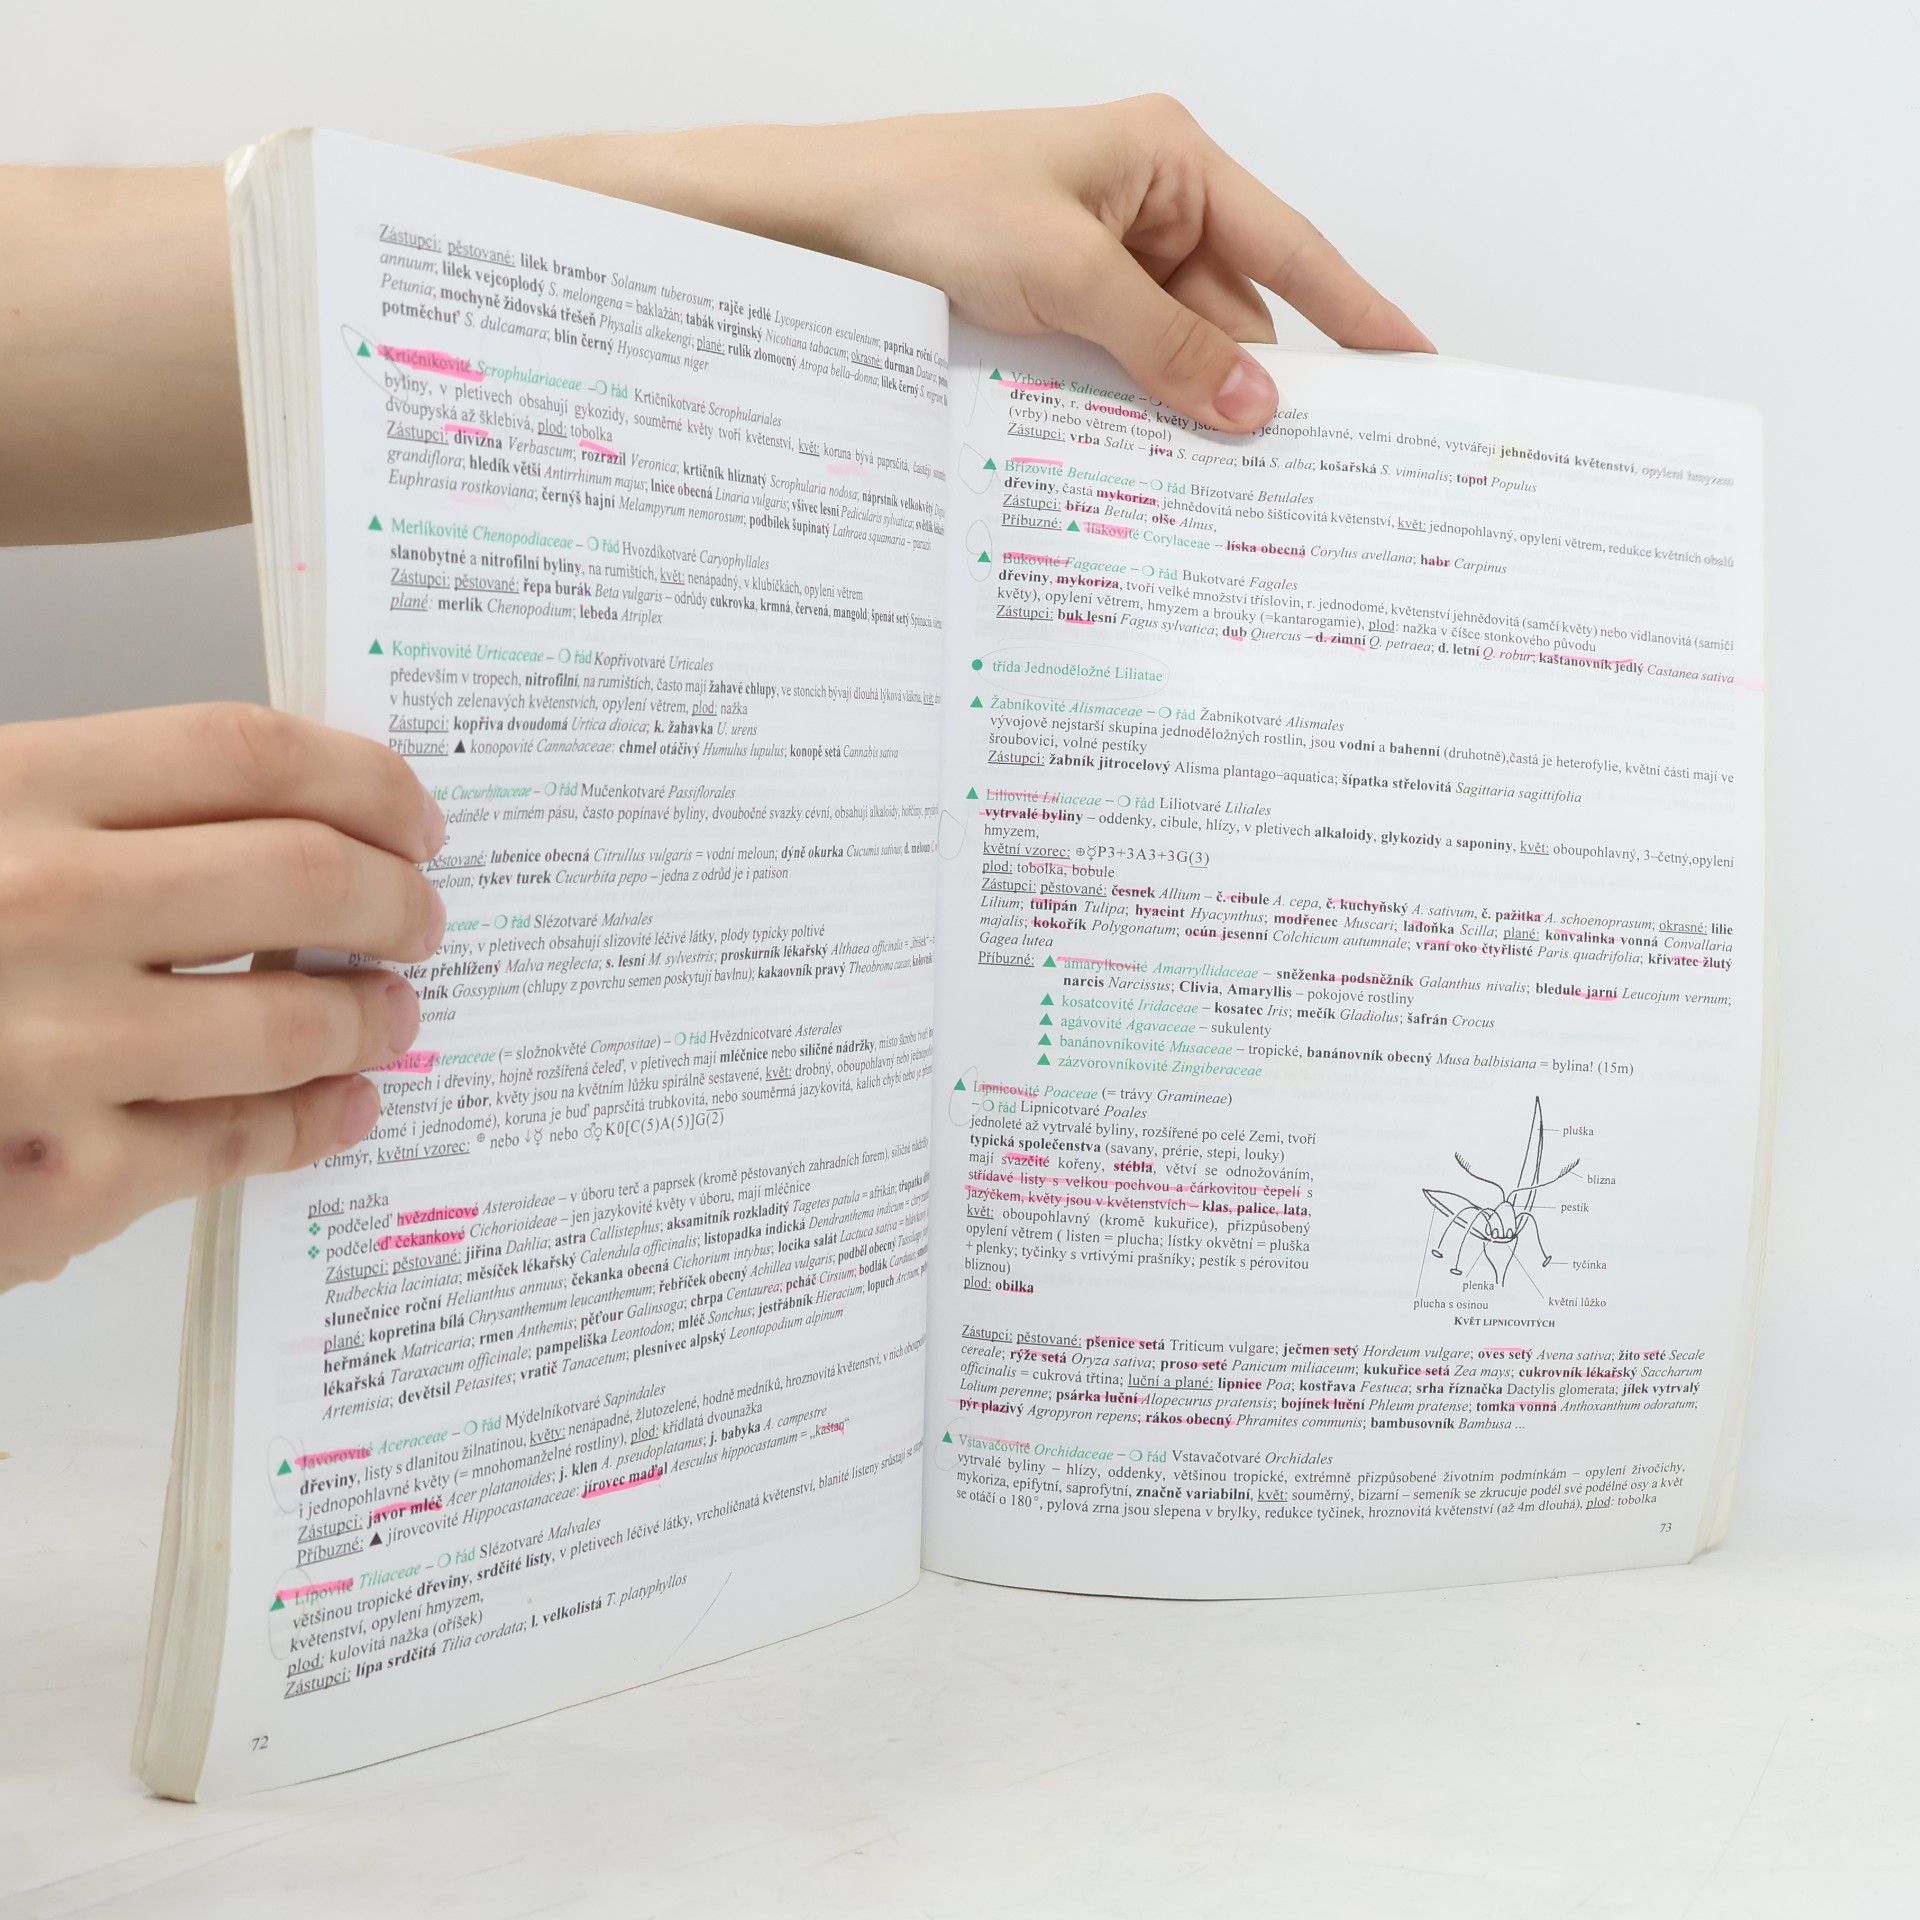 Zástupci: pěstované: lilek brambor Solanum tuberosum; rajče jedlé Lycopersicon esculentum; paprika roční
annuum; lilek vejcoplodý S. melongena = baklažán; tabák virginský Nicotiana tabacum; okrasné: durman Datura;
Petunia; mochyně židovská třešeň Physalis alkekengi; plané: rulík zlomocný Atropa bella-donna; lilek černý S. nigrum;
potměchuť S. dulcamara; blín černý Hyoscyamus niger
▲ Krtičníkovité Scrophulariaceae – ❍ řád Krtičníkotvaré Scrophulariales
byliny, v pletivech obsahují gykozidy, souměrné květy tvoří květenství, květ: koruna bývá paprsčitá, častěji
dvoupyská až šklebivá, plod: tobolka
Zástupci: divizna Verbascum; rozrazil Veronica; krtičník hlíznatý Scrophularia nodosa; náprstník velkokvětý
grandiflora; hledík větší Antirrhinum majus; lnice obecná Linaria vulgaris; všivec lesní Pedicularis sylvatica; světlík
Euphrasia rostkoviana; černýš hajní Melampyrum nemorosum; podbílek šupinatý Lathraea squamaria –
▲ Merlíkovité Chenopodiaceae – ❍ řád Hvozdíkotvaré Caryophyllales
slanobytné a nitrofilní byliny, na rumištích, květ: nenápadný, v klubíčkách, opylení větrem
Zástupci: pěstované: řepa burák Beta vulgaris – odrůdy cukrovka, krmná, červená, mangold; špenát setý Spinacia
plané: merlík Chenopodium; lebeda Atriplex
▲ Kopřivovité Urticaceae – ❍ řád Kopřivotvaré Urticales
především v tropech, nitrofilní, na rumištích, často mají žahavé chlupy, ve stoncích bývají dlouhá lýková vlákna, květ:
v hustých zelenavých květenstvích, opylení větrem, plod: nažka
Zástupci: kopřiva dvoudomá Urtica dioica; k. žahavka U. urens
Příbuzné: ▲ konopovité Cannabaceae: chmel otáčivý Humulus lupulus; konopě setá Cannabis sativa
Cucurbitaceae – ❍ řád Mučenkotvaré Passiflorales
v mírném pásu, často popínavé byliny, dvoubočné svazky cévní, obsahují alkaloidy, hořčiny,
pěstované: lubenice obecná Citrullus vulgaris = vodní meloun; dýně okurka Cucumis sativus; d. meloun
meloun; tykev turek Cucurbita pepo – jedna z odrůd je i patison
– ❍ řád Slézotvaré Malvales
v pletivech obsahují slizovité léčivé látky, plody typicky poltivé
sléz přehlížený Malva neglecta; s. lesní M. sylvestris; proskurník lékařský Althaea officinalis
Gossypium (chlupy z povrchu semen poskytují bavlnu); kakaovník pravý Theobroma cacao;
Asteraceae (= složnokvěté Compositae) – ❍ řád Hvězdnicotvaré Asterales
tropech i dřeviny, hojně rozšířená čeleď, v pletivech mají mléčnice nebo siličné nádržky, místo škrobu tvoří
je úbor, květy jsou na květním lůžku spirálně sestavené, květ: drobný, oboupohlavný nebo
i jednodomé), koruna je buď paprsčitá trubkovitá, nebo souměrná jazykovitá, kalich chybí nebo je
v chmýr, květní vzorec: ⊕ nebo ↓☿ nebo ♂♀ K0[C(5)A(5)]G(2)
plod: nažka
❖ podčeleď hvězdnicové Asteroideae – v úboru terč a paprsek (kromě pěstovaných zahradních forem), siličné nádržky
❖ podčeleď čekankové Cichorioideae – jen jazykovité květy v úboru, mají mléčnice
Zástupci: pěstované: jiřina Dahlia; astra Callistephus; aksamitník rozkladitý Tagetes patula = afrikán; třapatka
Rudbeckia laciniata; měsíček lékařský Calendula officinalis; listopadka indická Dendranthema indicum =
slunečnice roční Helianthus annuus; čekanka obecná Cichorium intybus; locika salát Lactuca sativa =
plané: kopretina bílá Chrysanthemum leucanthemum; řebříček obecný Achillea vulgaris; podběl obecný Tussilago
heřmánek Matricaria; rmen Anthemis; pěťour Galinsoga; chrpa Centaurea; pcháč Cirsium; bodlák Carduus;
lékařská Taraxacum officinale; pampeliška Leontodon; mléč Sonchus; jestřábník Hieracium; lopuch Arctium;
Artemisia; devětsil Petasites; vratič Tanacetum; plesnivec alpský Leontopodium alpinum
▲ Javorovité Aceraceae – ❍ řád Mýdelníkotvaré Sapindales
dřeviny, listy s dlanitou žilnatinou, květy: nenápadné, žlutozelené, hodně medníků, hroznovitá květenství, v nich
i jednopohlavné květy (= mnohomanželné rostliny), plod: křídlatá dvounažka
Zástupci: javor mléč Acer platanoides; j. klen A. pseudoplatanus; j. babyka A. campestre
Příbuzné: ▲ jírovcovité Hippocastanaceae: jírovec maďal Aesculus hippocastanum = „kaštan“
▲ Lipovité Tiliaceae – ❍ řád Slézotvaré Malvales
většinou tropické dřeviny, srdčité listy, v pletivech léčivé látky, vrcholičnatá květenství, blanité listeny srůstají se
květenství, opylení hmyzem,
plod: kulovitá nažka (oříšek)
Zástupci: lípa srdčitá Tilia cordata; l. velkolistá T. platyphyllos
72
▲ Vrbovité Salicaceae –
dřeviny, r. dvoudomé, květy jsou jednopohlavné, velmi drobné, vytvářejí jehnědovitá květenství, opylení hmyzem
(vrby) nebo větrem (topol)
Zástupci: vrba Salix – jíva S. caprea; bílá S. alba; košařská S. viminalis; topol Populus
▲ Břízovité Betulaceae – ❍ řád Břízotvaré Betulales
dřeviny, častá mykoriza, jehnědovitá nebo šišticovitá květenství, květ: jednopohlavný, opylení větrem, redukce květních obalů
Zástupci: bříza Betula; olše Alnus,
Příbuzné: ▲ lískovité Corylaceae – líska obecná Corylus avellana; habr Carpinus
▲ Bukovité Fagaceae – ❍ řád Bukotvaré Fagales
dřeviny, mykoriza, tvoří velké množství tříslovin, r. jednodomé, květenství jehnědovitá (samčí květy) nebo vidlanovitá (samičí
květy), opylení větrem, hmyzem a brouky (=kantarogamie), plod: nažka v číšce stonkového původu
Zástupci: buk lesní Fagus sylvatica; dub Quercus – d. zimní Q. petraea; d. letní Q. robur; kaštanovník jedlý Castanea sativa
● třída Jednoděložné Liliatae
▲ Žabníkovité Alismaceae – ❍ řád Žabníkotvaré Alismales
vývojově nejstarší skupina jednoděložných rostlin, jsou vodní a bahenní (druhotně),častá je heterofylie, květní části mají ve
šroubovici, volné pestíky
Zástupci: žabník jitrocelový Alisma plantago–aquatica; šípatka střelovitá Sagittaria sagittifolia
▲ Liliovité Liliaceae – ❍ řád Liliotvaré Liliales
vytrvalé byliny – oddenky, cibule, hlízy, v pletivech alkaloidy, glykozidy a saponiny, květ: oboupohlavný, 3–četný,opylení
hmyzem,
květní vzorec: ⊕☿P3+3A3+3G(3)
plod: tobolka, bobule
Zástupci: pěstované: česnek Allium – č. cibule A. cepa, č. kuchyňský A. sativum, č. pažitka A. schoenoprasum; okrasné: lilie
Lilium; tulipán Tulipa; hyacint Hyacynthus; modřenec Muscari; ladoňka Scilla; plané: konvalinka vonná Convallaria
majalis; kokořík Polygonatum; ocún jesenní Colchicum autumnale; vraní oko čtyřlisté Paris quadrifolia; křivatec žlutý
Gagea lutea
Příbuzné: ▲ amarylkovité Amarryllidaceae – sněženka podsněžník Galanthus nivalis; bledule jarní Leucojum vernum;
narcis Narcissus; Clivia, Amaryllis – pokojové rostliny
▲ kosatcovité Iridaceae – kosatec Iris; mečík Gladiolus; šafrán Crocus
▲ agávovité Agavaceae – sukulenty
▲ banánovníkovité Musaceae – tropické, banánovník obecný Musa balbisiana = bylina! (15m)
▲ zázvorovníkovité Zingiberaceae
▲ Lipnicovité Poaceae (= trávy Gramineae)
– ❍ řád Lipnicotvaré Poales
jednoleté až vytrvalé byliny, rozšířené po celé Zemi, tvoří
typická společenstva (savany, prérie, stepi, louky)
mají svazčité kořeny, stébla, větví se odnožováním,
střídavé listy s velkou pochvou a čárkovitou čepelí s
jazýčkem, květy jsou v květenstvích – klas, palice, lata,
květ: oboupohlavný (kromě kukuřice), přizpůsobený
opylení větrem ( listen = plucha; lístky okvětní = pluška
+ plenky; tyčinky s vrtivými prašníky; pestík s pérovitou
bliznou)
plod: obilka
pluška
blizna
pestík
tyčinka
plenka
plucha s osinou
květní lůžko
KVĚT LIPNICOVITÝCH
Zástupci: pěstované: pšenice setá Triticum vulgare; ječmen setý Hordeum vulgare; oves setý Avena sativa; žito seté Secale
cereale; rýže setá Oryza sativa; proso seté Panicum miliaceum; kukuřice setá Zea mays; cukrovník lékařský Saccharum
officinalis = cukrová třtina; luční a plané: lipnice Poa; kostřava Festuca; srha říznačka Dactylis glomerata; jílek vytrvalý
Lolium perenne; psárka luční Alopecurus pratensis; bojínek luční Phleum pratense; tomka vonná Anthoxanthum odoratum;
pýr plazivý Agropyron repens; rákos obecný Phramites communis; bambusovník Bambusa ...
▲ Vstavačovité Orchidaceae – ❍ řád Vstavačotvaré Orchidales
vytrvalé byliny – hlízy, oddenky, většinou tropické, extrémně přizpůsobené životním podmínkám – opylení živočichy,
mykoriza, epifytní, saprofytní, značně variabilní, květ: souměrný, bizarní – semeník se zkrucuje podél své podélné osy a květ
se otáčí o 180°, pylová zrna jsou slepena v brylky, redukce tyčinek, hroznovitá květenství (až 4m dlouhá), plod: tobolka
73